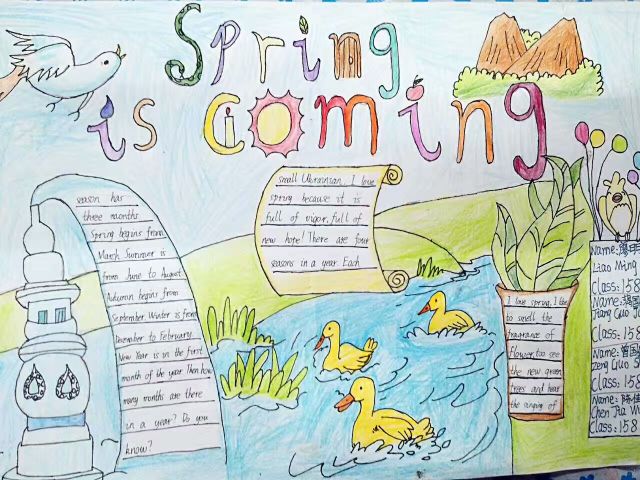 Spring
is coming
small Ukrainian. I love
spring because it is
full of vigor, full of
new hope! There are four
seasons in a year Each
season has
three months
Spring begins from
March Summer is
from June to August
Autumn begins from
September Winter is from
December to February.
New Year is in the first
month of the year Then how
many months are there
in a year? Do you
know?
I love spring, I like
to smell the
fragrance of
flower, too see
the new green
trees and hear
the singing of
Name:
Liao Ming
Class: 158
Name:
Jiang Guo
Class: 158
Name:
Zeng Guo
Class: 158
Name:
Chen Jia
Class: 158